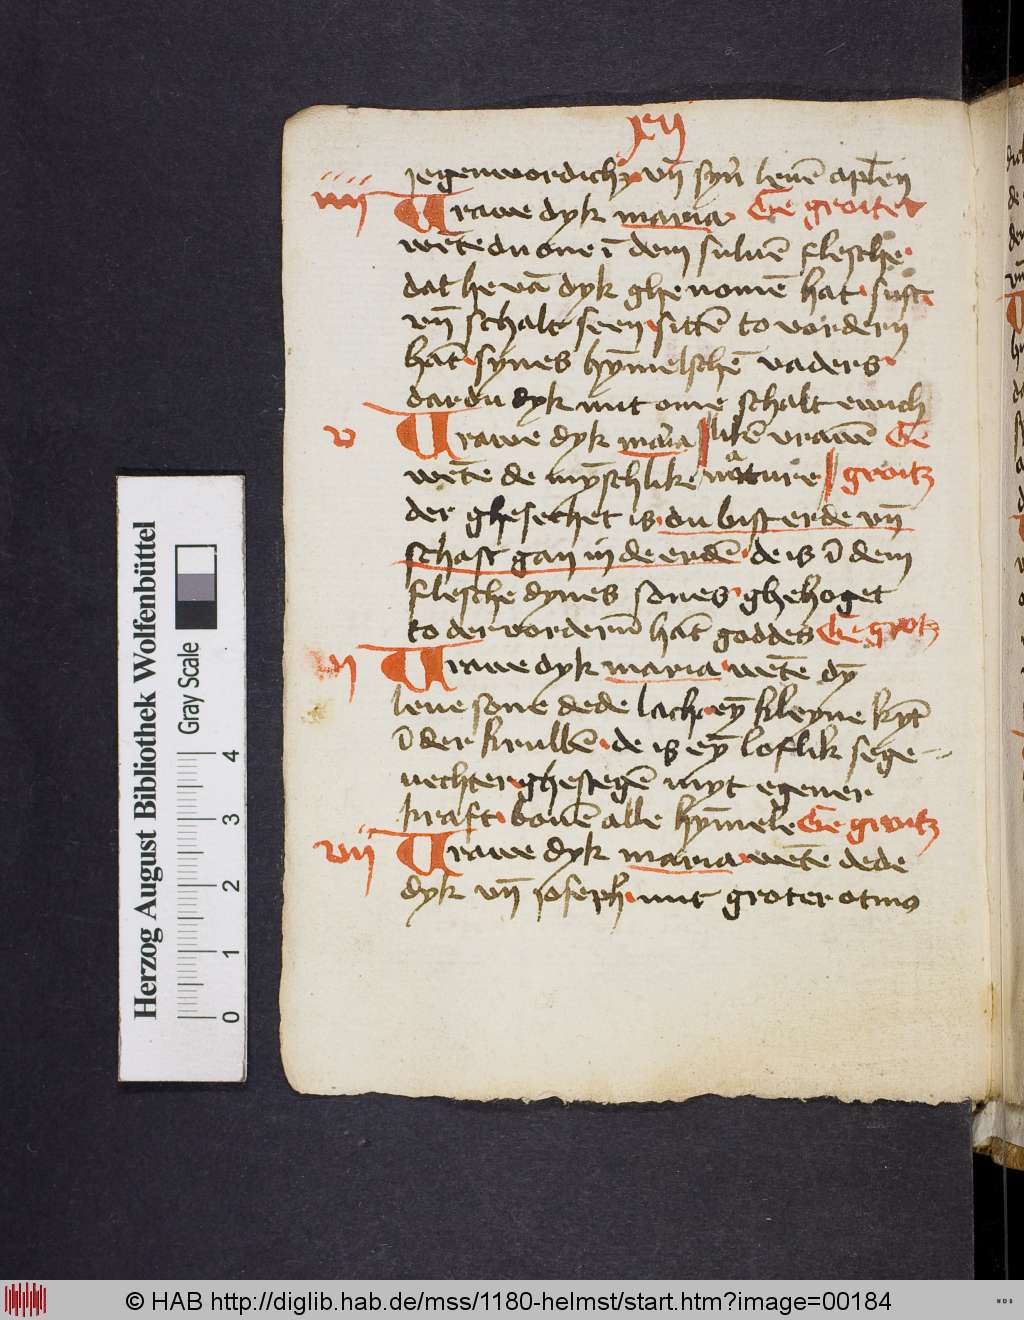 jegenwordich vn̄ syn̄ leuē apl̄en
iiii Urawe dyk maria Ge groitet
wēte du one ī dem suluē flesche
dat he vā dyk ghenomē hat sust
vn̄ schalt seen sittē to vordern
hāt synes hȳmelschē vaders
dar du dyk mit ome schalt ewich
v Urawe dyk maria likē vrawē Ge
wēte de mȳschlike nature groitz
der ghesechet is du bist erde vn̄
schast gan in de erdē de is ī dem
flesche dynes sones ghehoget
to der vorderm̄ hāt goddes Ge grotz
vi Urawe dyk maria wēte dȳ
leue sone dede lach eȳ kleyne kȳt
ī der krubbē de is eȳ loflik sege
vechter ghestegē myt egener
kraft bouē alle hȳmele Ge groitz
vii Urawe dyk maria wēte dede
dyk vn̄ joseph mit groter otmo
Herzog August Bibliothek Wolfenbüttel
Gray Scale
0 1 2 3 4
© HAB http://diglib.hab.de/mss/1180-helmst/start.htm?image=00184